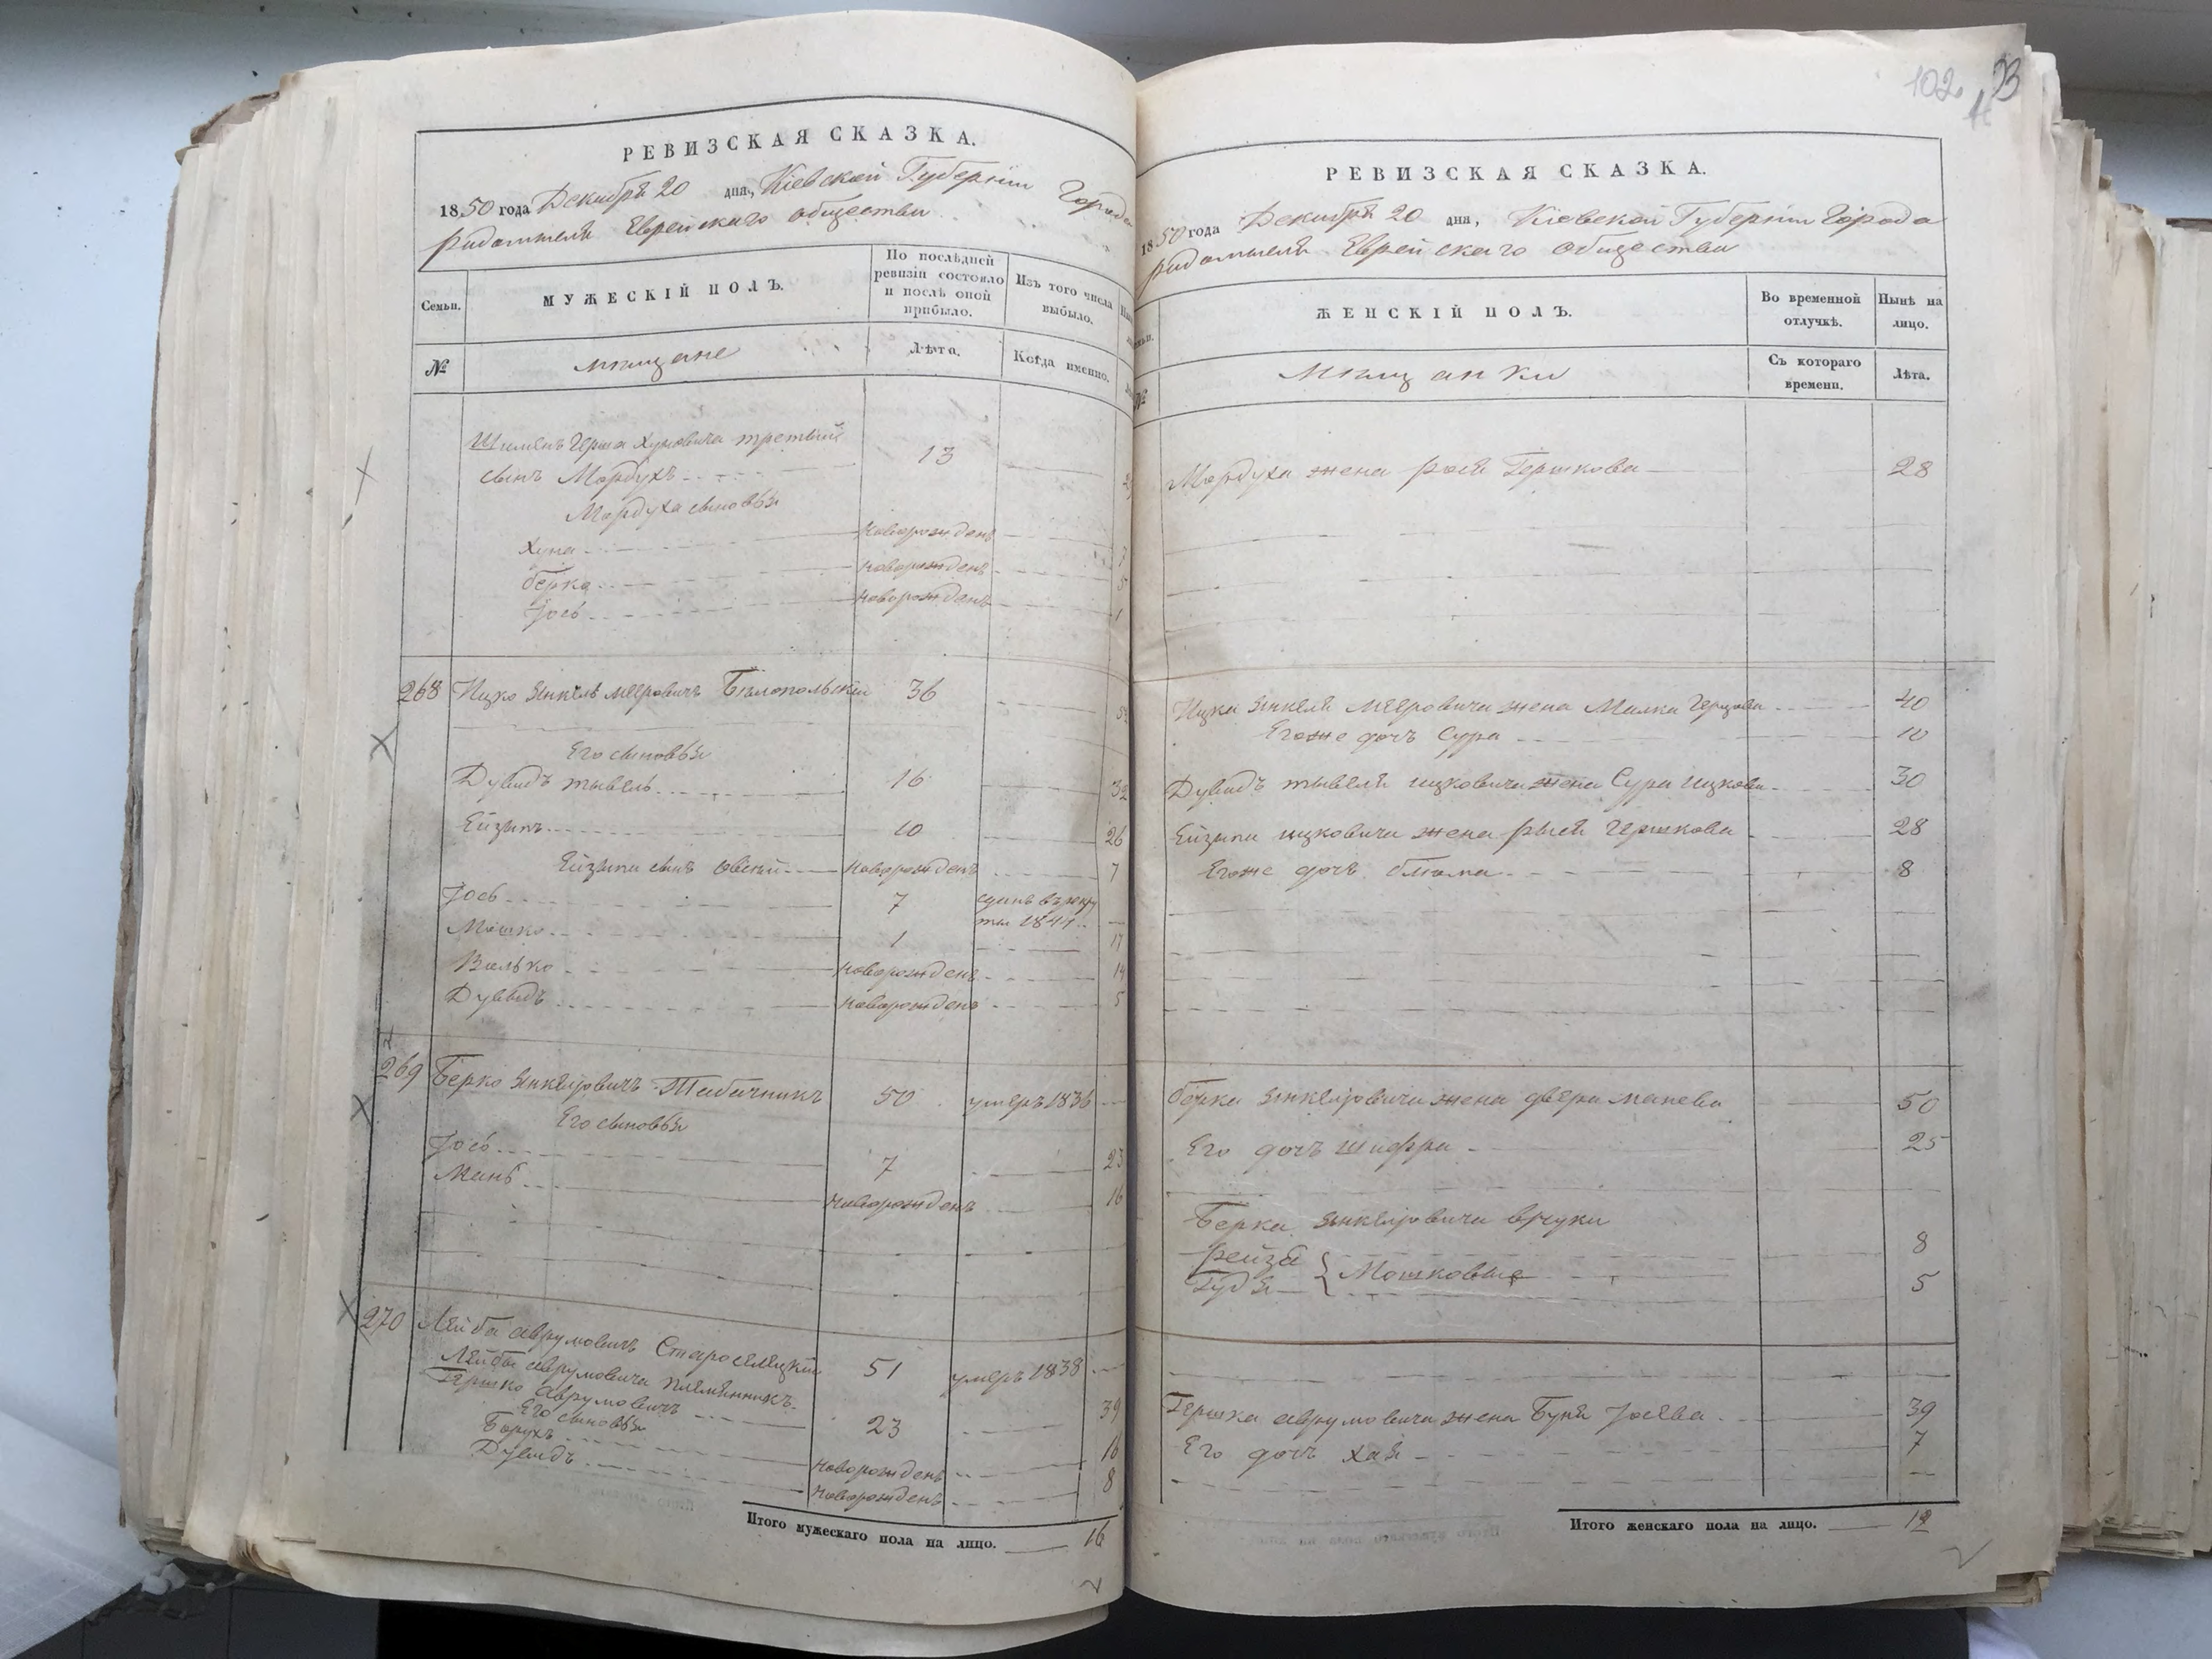 РЕВИЗСКАЯ СКАЗКА.
1850 года Декабря 20 дня, Кіевской Губерніи Города
Радомысля Еврейскаго общества
Семьи.
МУЖЕСКІЙ ПОЛЪ.
По послѣдней ревизіи состояло и послѣ оной прибыло.
Изъ того числа выбыло.
№
мещане
Лѣта.
Когда именно.
Герша Хуновича третьий
сынъ Мордухъ 13
Мордуха сыновья
Хуна новорожденъ 7
Берко новорожденъ 5
Іось новорожденъ 1
268 Ицко Янкель Мееровичъ Бялопольскій 36
Его сыновья
Дувидъ Тывель 16 32
Ейзыкъ 10 26
Ейзыка сынъ Овсей новорожденъ 7
Іось 7 сданъ въ рекру
ты 1844
Мошко 1 17
Волько новорожденъ 14
Дувидъ новорожденъ 5
269 Берко Янкелровичъ Табачникъ 50 умеръ 1836
Его сыновья
Іось 7 23
Мань новорожденъ 16
270 Лейба Аврумовичъ Староселецкій 51 умеръ 1838
Лейбы Аврумовича племянникъ
Гершко Аврумовичъ 23 39
Его сыновья
Борухъ новорожденъ 16
Дувидъ новорожденъ 8
Итого мужескаго пола на лицо. 16
102.
РЕВИЗСКАЯ СКАЗКА.
1850 года Декабря 20 дня, Кіевской Губерніи Города
Радомысля Еврейскаго общества
ЖЕНСКІЙ ПОЛЪ.
Во временной отлучкѣ.
Нынѣ на лицо.
№
мещанки
Съ котораго времени.
Лѣта.
Мордуха жена Рося Гершкова 28
Ицка Янкеля Мееровича жена Малка Герцова 40
Его же дочь Сура 10
Дувидъ Тывеля Ицковича жена Сура Ицкова 30
Ейзыка Ицковича жена Рыся Гершкова 28
Его же дочь Блюма 8
Берка Янкелровича жена Двера Манева 50
Его дочь Шифра 25
Берка Янкелровича внуки
Рейзя 8
Гудя { Мошковые 5
Гершка Аврумовича жена Буня Іосева 39
Его дочь Хая 7
Итого женскаго пола на лицо. 12